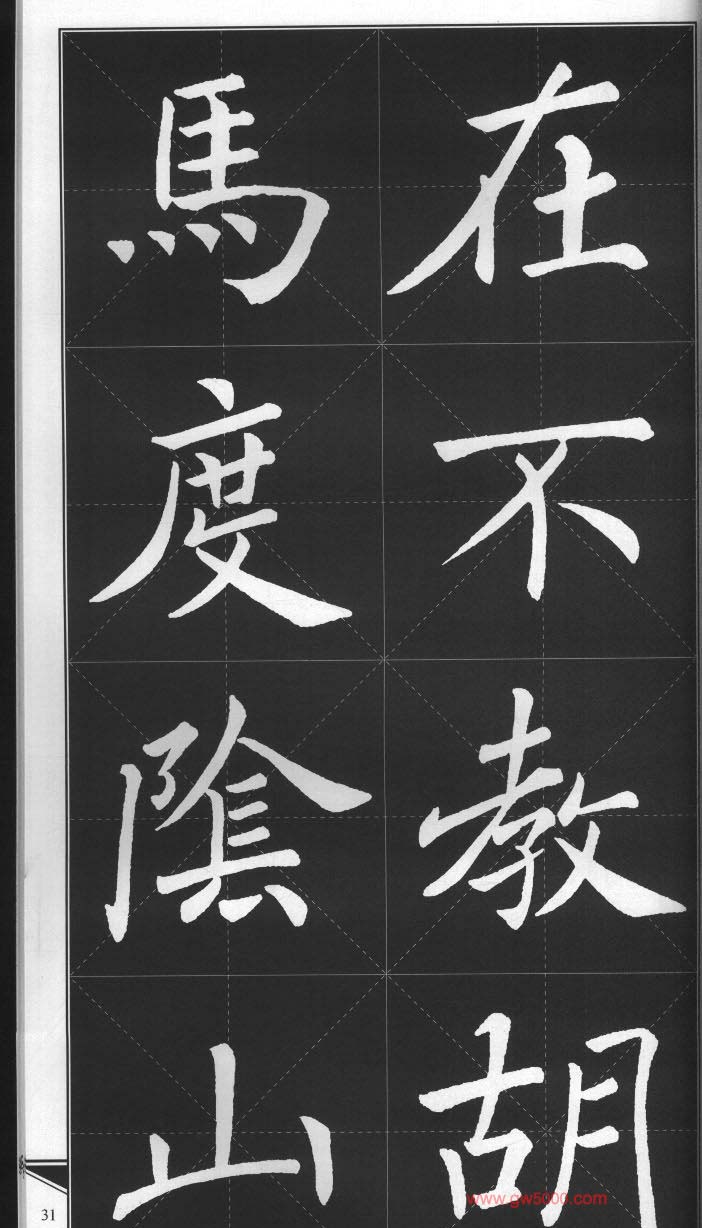 在不教胡
馬度陰山
31
www.gw5000.com